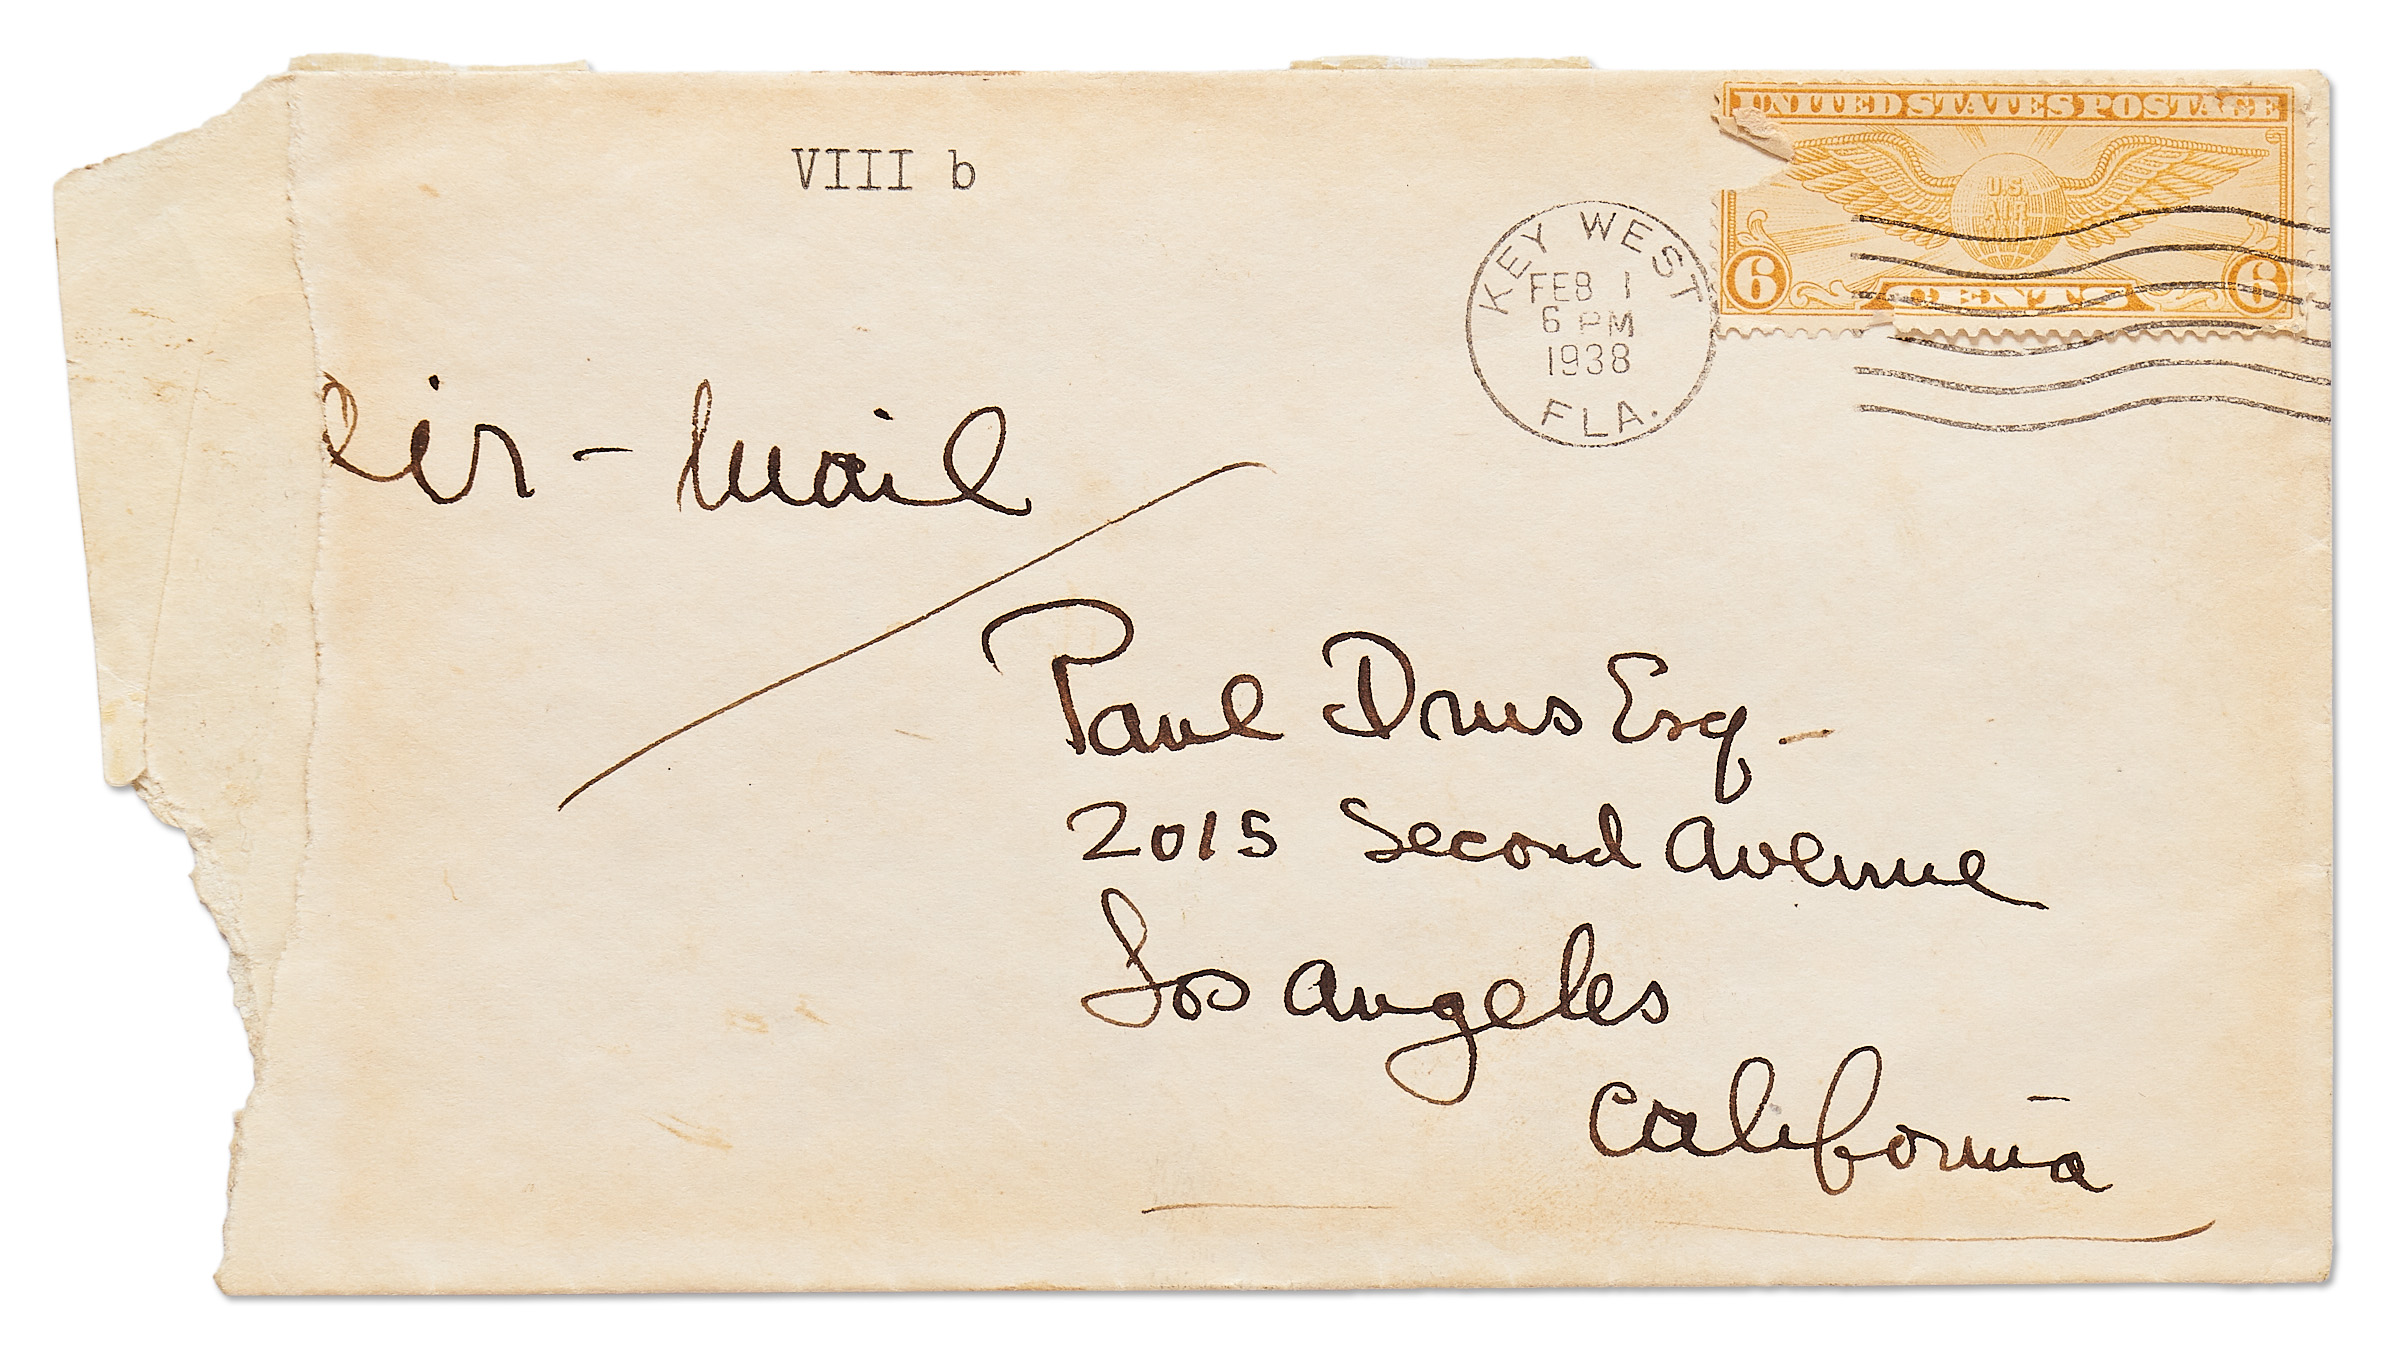 VIII b
UNITED STATES POSTAGE
U.S.
AIR
6 CENTS 6
KEY WEST
FEB 1
6 PM
1938
FLA.
air - mail
Paul Drus Esq -
2015 Second Avenue
Los Angeles
California